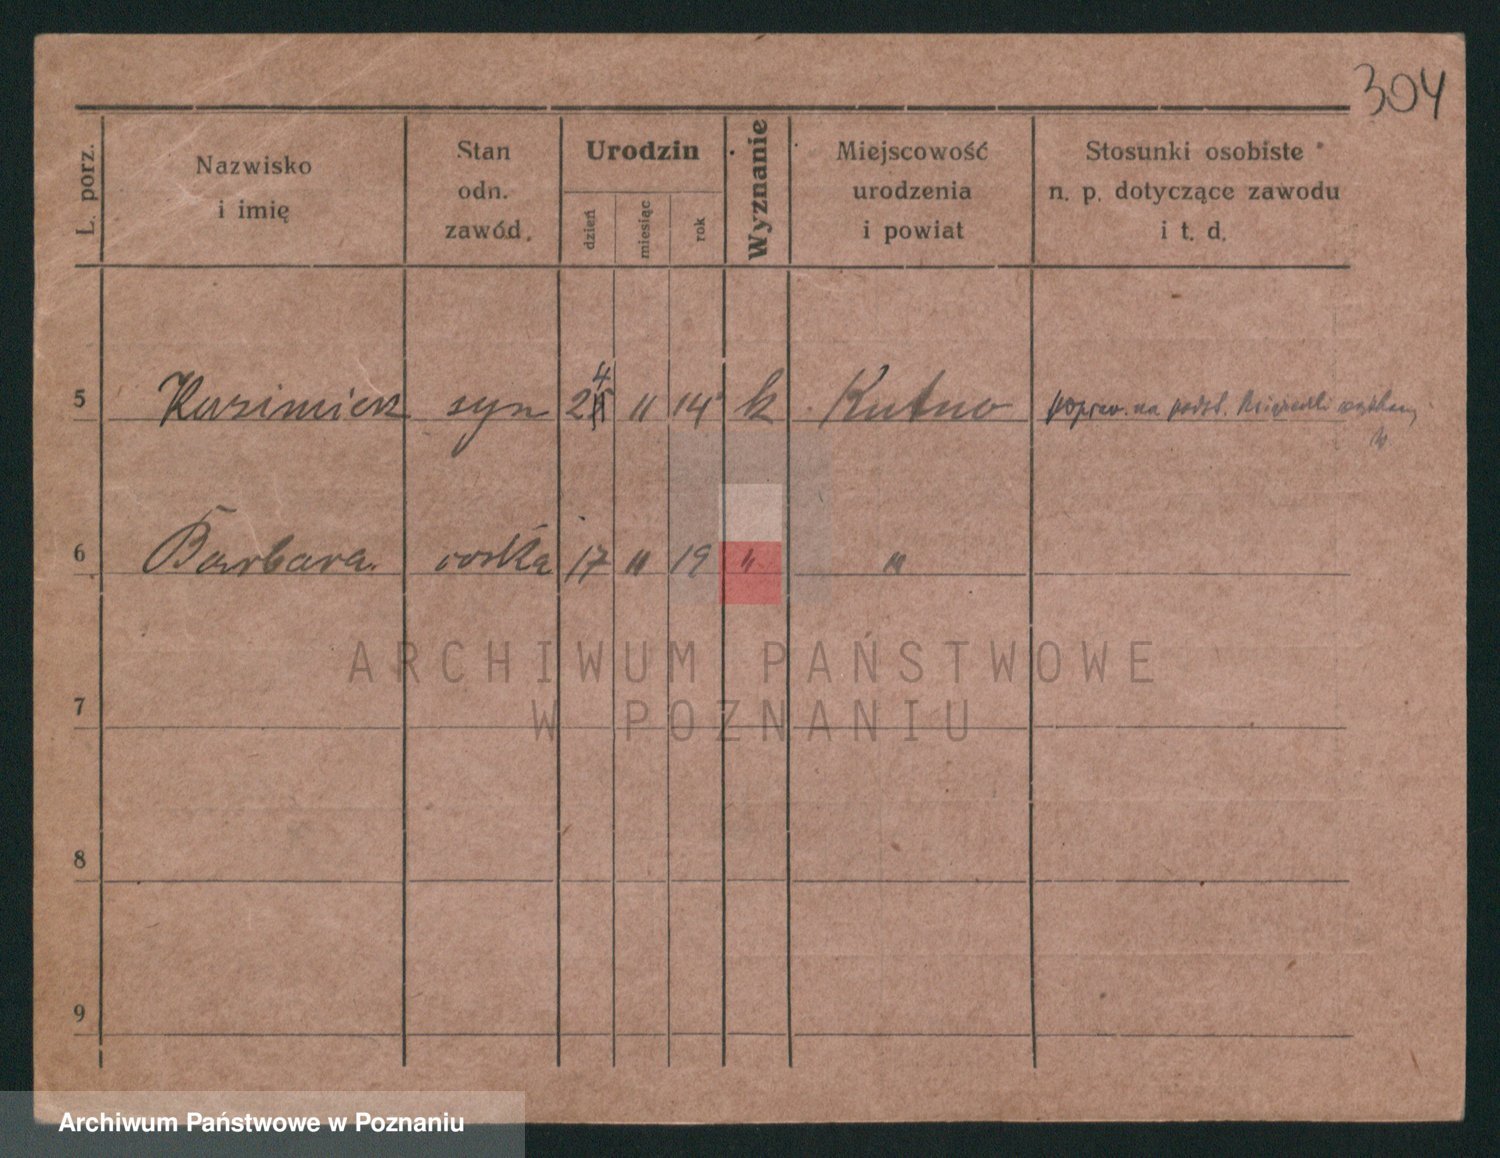 304
L. porz.
Nazwisko
i imię
Stan
odn.
zawód.
Urodzin
dzień
miesiąc
rok
Wyznanie
Miejscowość
urodzenia
i powiat
Stosunki osobiste
n. p. dotyczące zawodu
i t. d.
5 Kazimierz syn 24 11 14 k Kutno popraw. na podst.
6 Barbara. córka 17 " 19 " "
ARCHIWUM PAŃSTWOWE
W POZNANIU
7
8
9
Archiwum Państwowe w Poznaniu